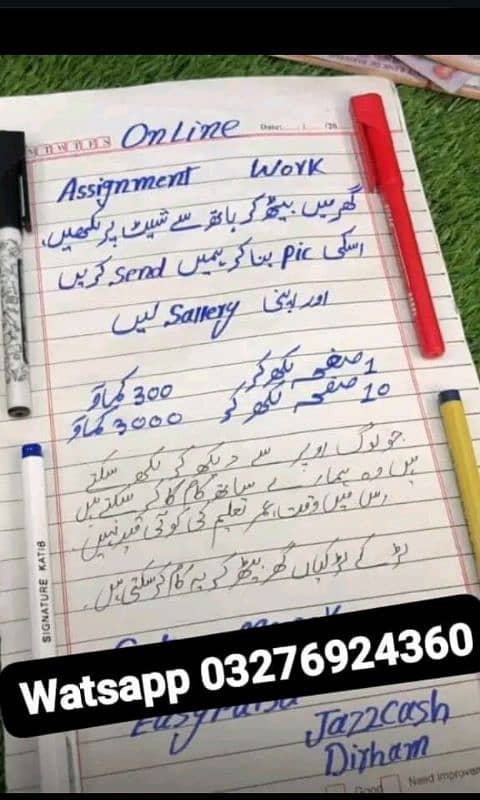 Online
Date: / /20
Assignment Work
گھر میں بیٹھ کر ہاتھ سے شیٹ پر لکھیں،
اسکی pic بنا کر ہمیں send کریں
اور اپنی Sallery لیں
1 صفحہ لکھ کر 300 کماؤ
10 صفحہ لکھ کر 3000 کماؤ
جو لوگ اوپر سے دیکھ کر لکھ سکتے
ہیں وہ ہمارے ساتھ کام کر سکتے ہیں
اس میں وقت، عمر تعلیم کی کوئی قید نہیں۔
لڑکے لڑکیاں گھر بیٹھ کر یہ کام کر سکتی ہیں۔
SIGNATURE KATIB
Watsapp 03276924360
Easypaisa
Jazzcash
Dirham
Good Need improvem